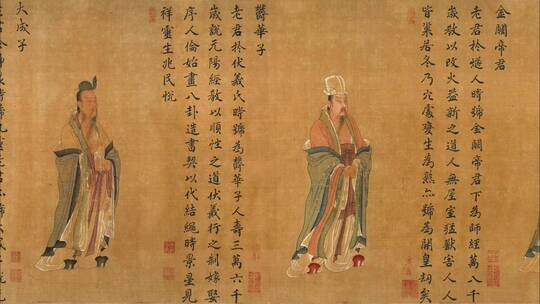 金闕帝君
老君於燧人時號金闕帝君下為師經万八千
歲教以改火益新之道人無屋室猛獸害人人
皆巢居冬乃穴處變生為熟亦號為開皇劫矣
鬱華子
老君於伏羲氏時號為鬱華子人壽三萬六千
歲說元陽經教以順性之道伏羲行之制嫁娶
序人倫始畫八卦造書契以代結繩時景星見
祥靈生兆民悅
大成子